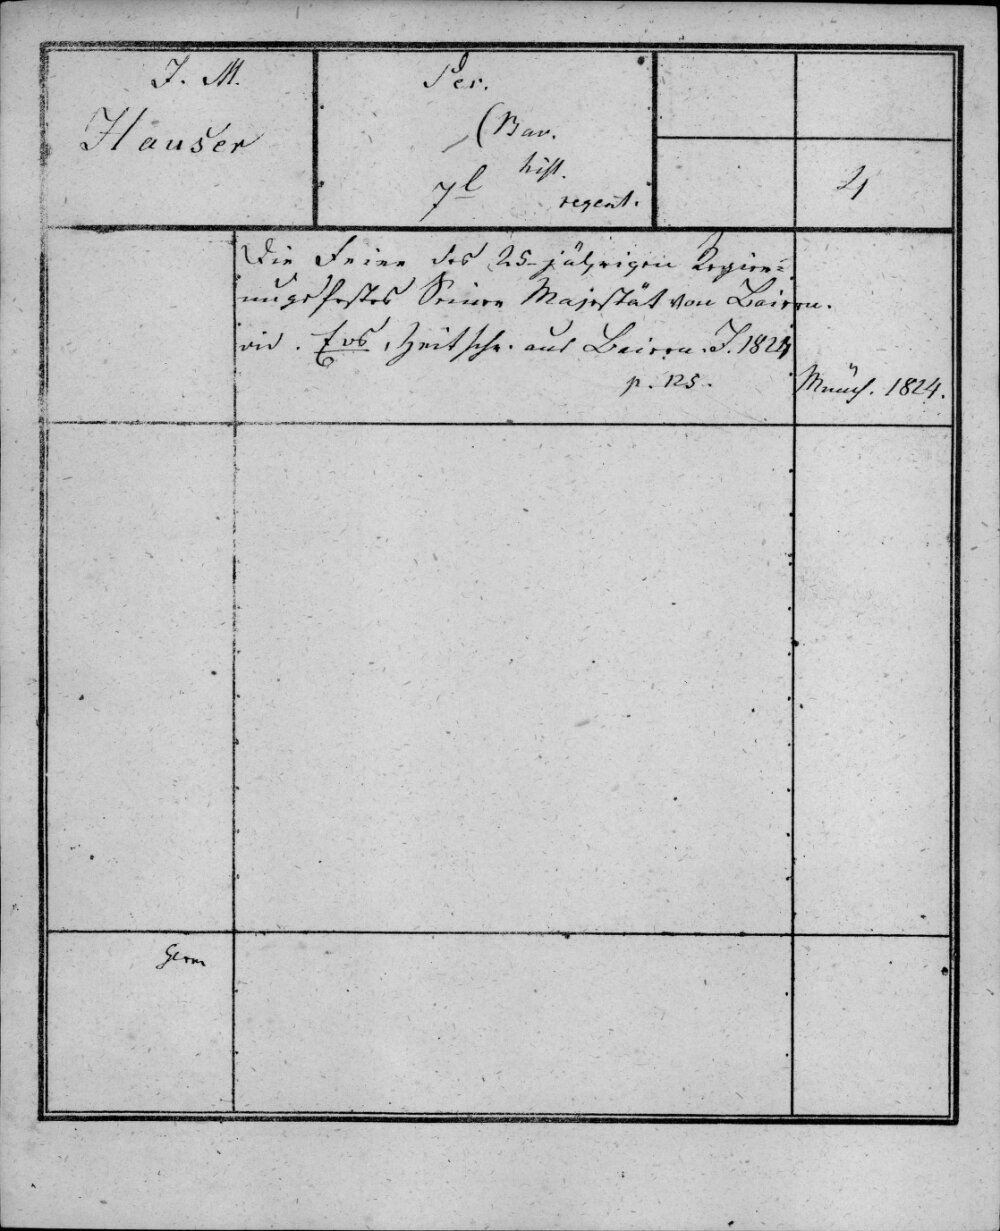 J. M.
Hauser
Per.
(Bav.
hist.
7l
regent.
4
Die Feier des 25-jährigen Regier=
ungsfestes Seiner Majestät von Baiern.
vid. Eos, Zeitschr. aus Baiern. J. 1824
p. 125.
Münch. 1824.
Germ